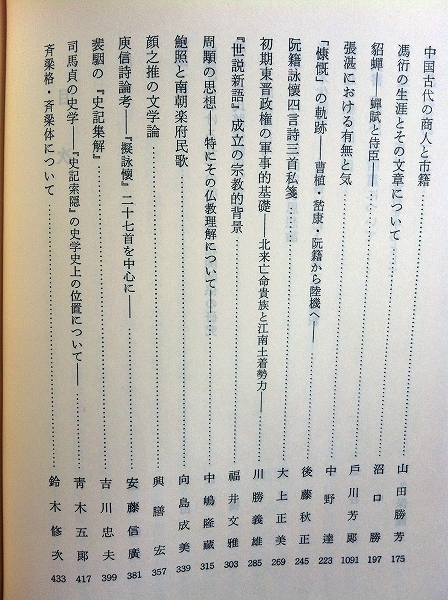 中国古代の商人と市籍……山田勝芳 175
馮衍の生涯とその文章について……沼口勝 197
貂蟬――蟬賦と侍臣――……戶川芳郎 1091
張湛における有無と気……中野達 223
「慷慨」の軌跡――曹植・嵆康・阮籍から陸機へ――……後藤秋正 245
阮籍詠懐四言詩三首私箋……大上正美 269
初期東晋政権の軍事的基礎――北来亡命貴族と江南土着勢力――……川勝義雄 285
『世説新語』成立の宗教的背景……福井文雅 303
周顒の思想――特にその仏教理解について――……中嶋隆藏 315
鮑照と南朝楽府民歌……向島成美 339
顔之推の文学論……興膳宏 357
庾信詩論考――『擬詠懐』二十七首を中心に――……安藤信廣 381
裴駰の『史記集解』……吉川忠夫 399
司馬貞の史学――『史記索隠』の史学史上の位置について――……青木五郎 417
斉梁格・斉梁体について……鈴木修次 433